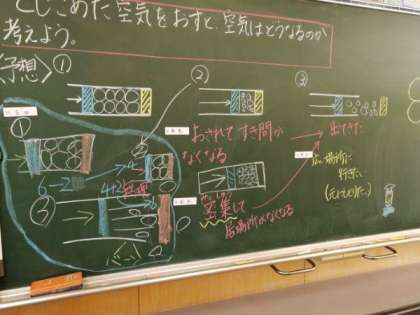 とじこめた空気をおすと、空気はどうなるのか
考えよう。
〈予想〉①
②
③
①
おされてすき間が
なくなる
出てきた
6→2
4
4+2
密集して
居場所がなくなる
広い場所に
行きたい
(元にもどりたい)
③